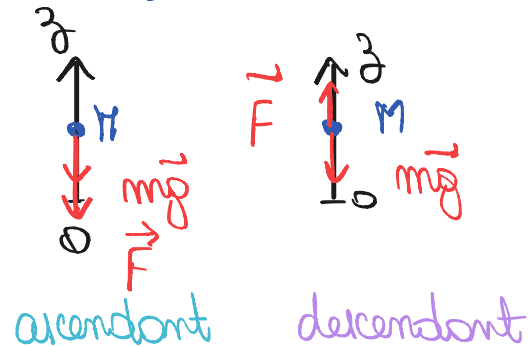 z
M
mg
O
F
ascendant
z
F
M
mg
O
descendant